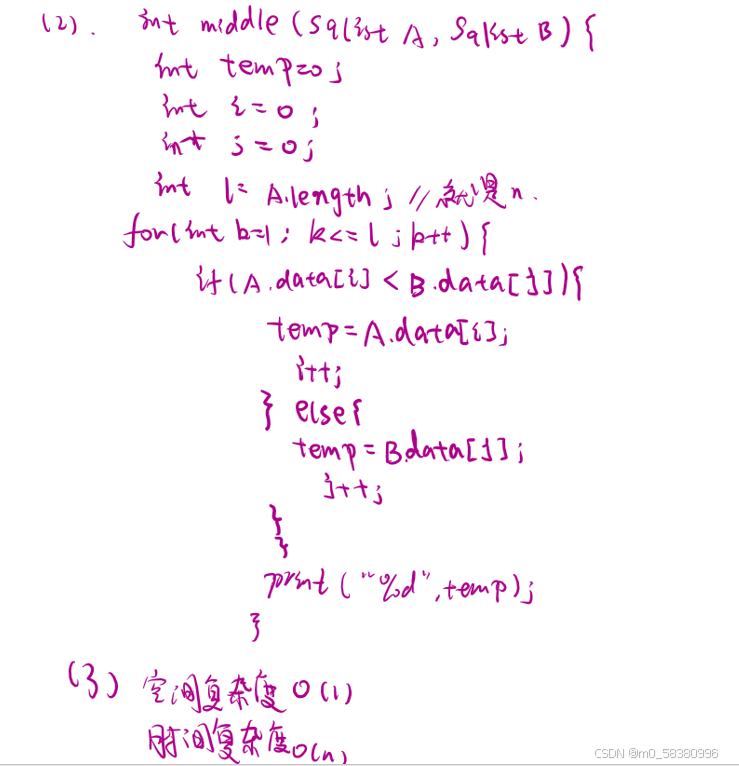 (2). int middle (Sqlist A, Sqlist B) {
int temp=0;
int i=0;
int j=0;
int l= A.length; //就是n.
for(int k=1; k<=l; k++){
if(A.data[i] < B.data[j]){
temp=A.data[i];
i++;
} else{
temp=B.data[j];
j++;
}
}
print ("%d",temp);
}
(3) 空间复杂度 O(1)
时间复杂度O(n)
CSDN @m0_58380996